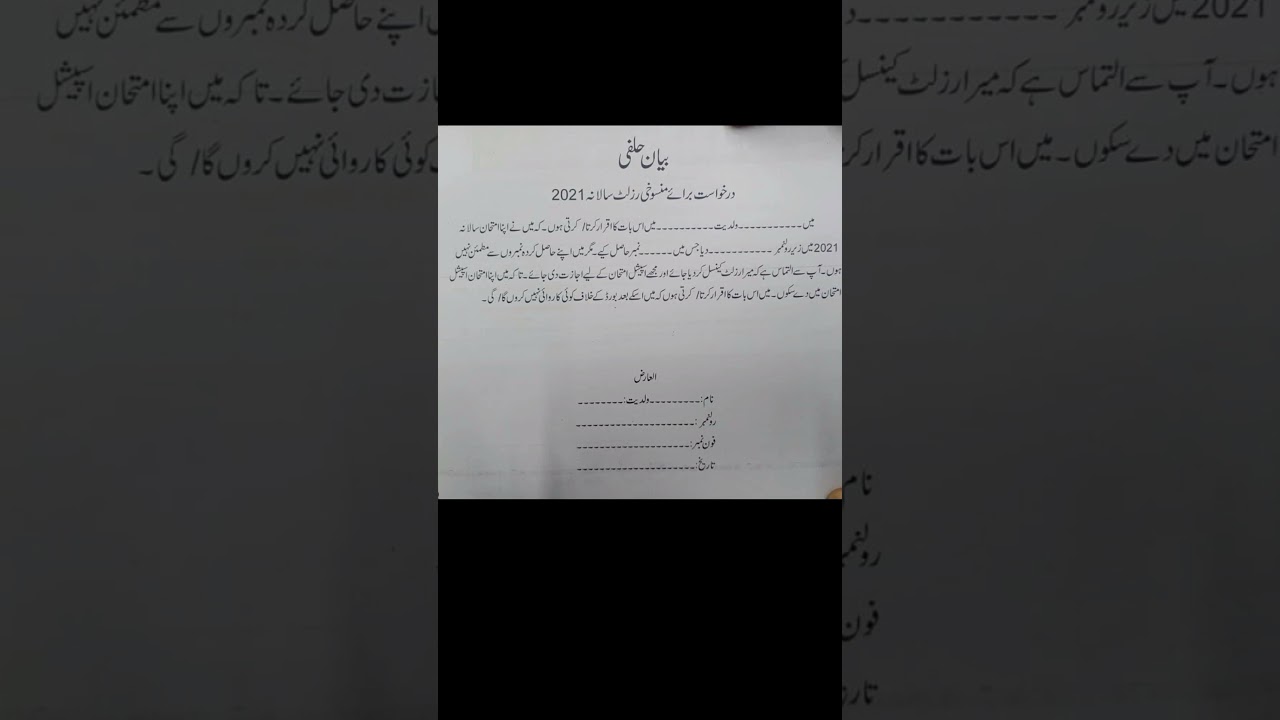 بیان حلفی
درخواست برائے منسوخی رزلٹ سالانہ 2021
میں ----------- ولدیت ---------- میں اس بات کا اقرار کرتا/ کرتی ہوں۔ کہ میں نے اپنا امتحان سالانہ
2021 میں زیر رولنمبر ----------- دیا جس میں ------ نمبر حاصل کیے۔ مگر میں اپنے حاصل کردہ نمبروں سے مطمئن نہیں
ہوں۔ آپ سے التماس ہے کہ میرا رزلٹ کینسل کر دیا جائے اور مجھے اسپیشل امتحان کے لیے اجازت دی جائے۔ تا کہ میں اپنا امتحان اسپیشل
امتحان میں دے سکوں۔ میں اس بات کا اقرار کرتا/ کرتی ہوں کہ میں اسکے بعد بورڈ کے خلاف کوئی کاروائی نہیں کروں گا/ گی۔
العارض
نام: --------- ولدیت: --------
رولنمبر: ---------------------
فون نمبر: --------------------
تاریخ: ---------------------